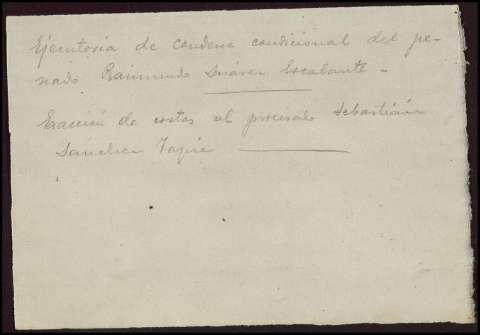 Ejecutoria de condena condicional del pe-
nado Raimundo Suárez Escalante -
Exacción de costas al procesado Sebastián
Sanchez Tapia